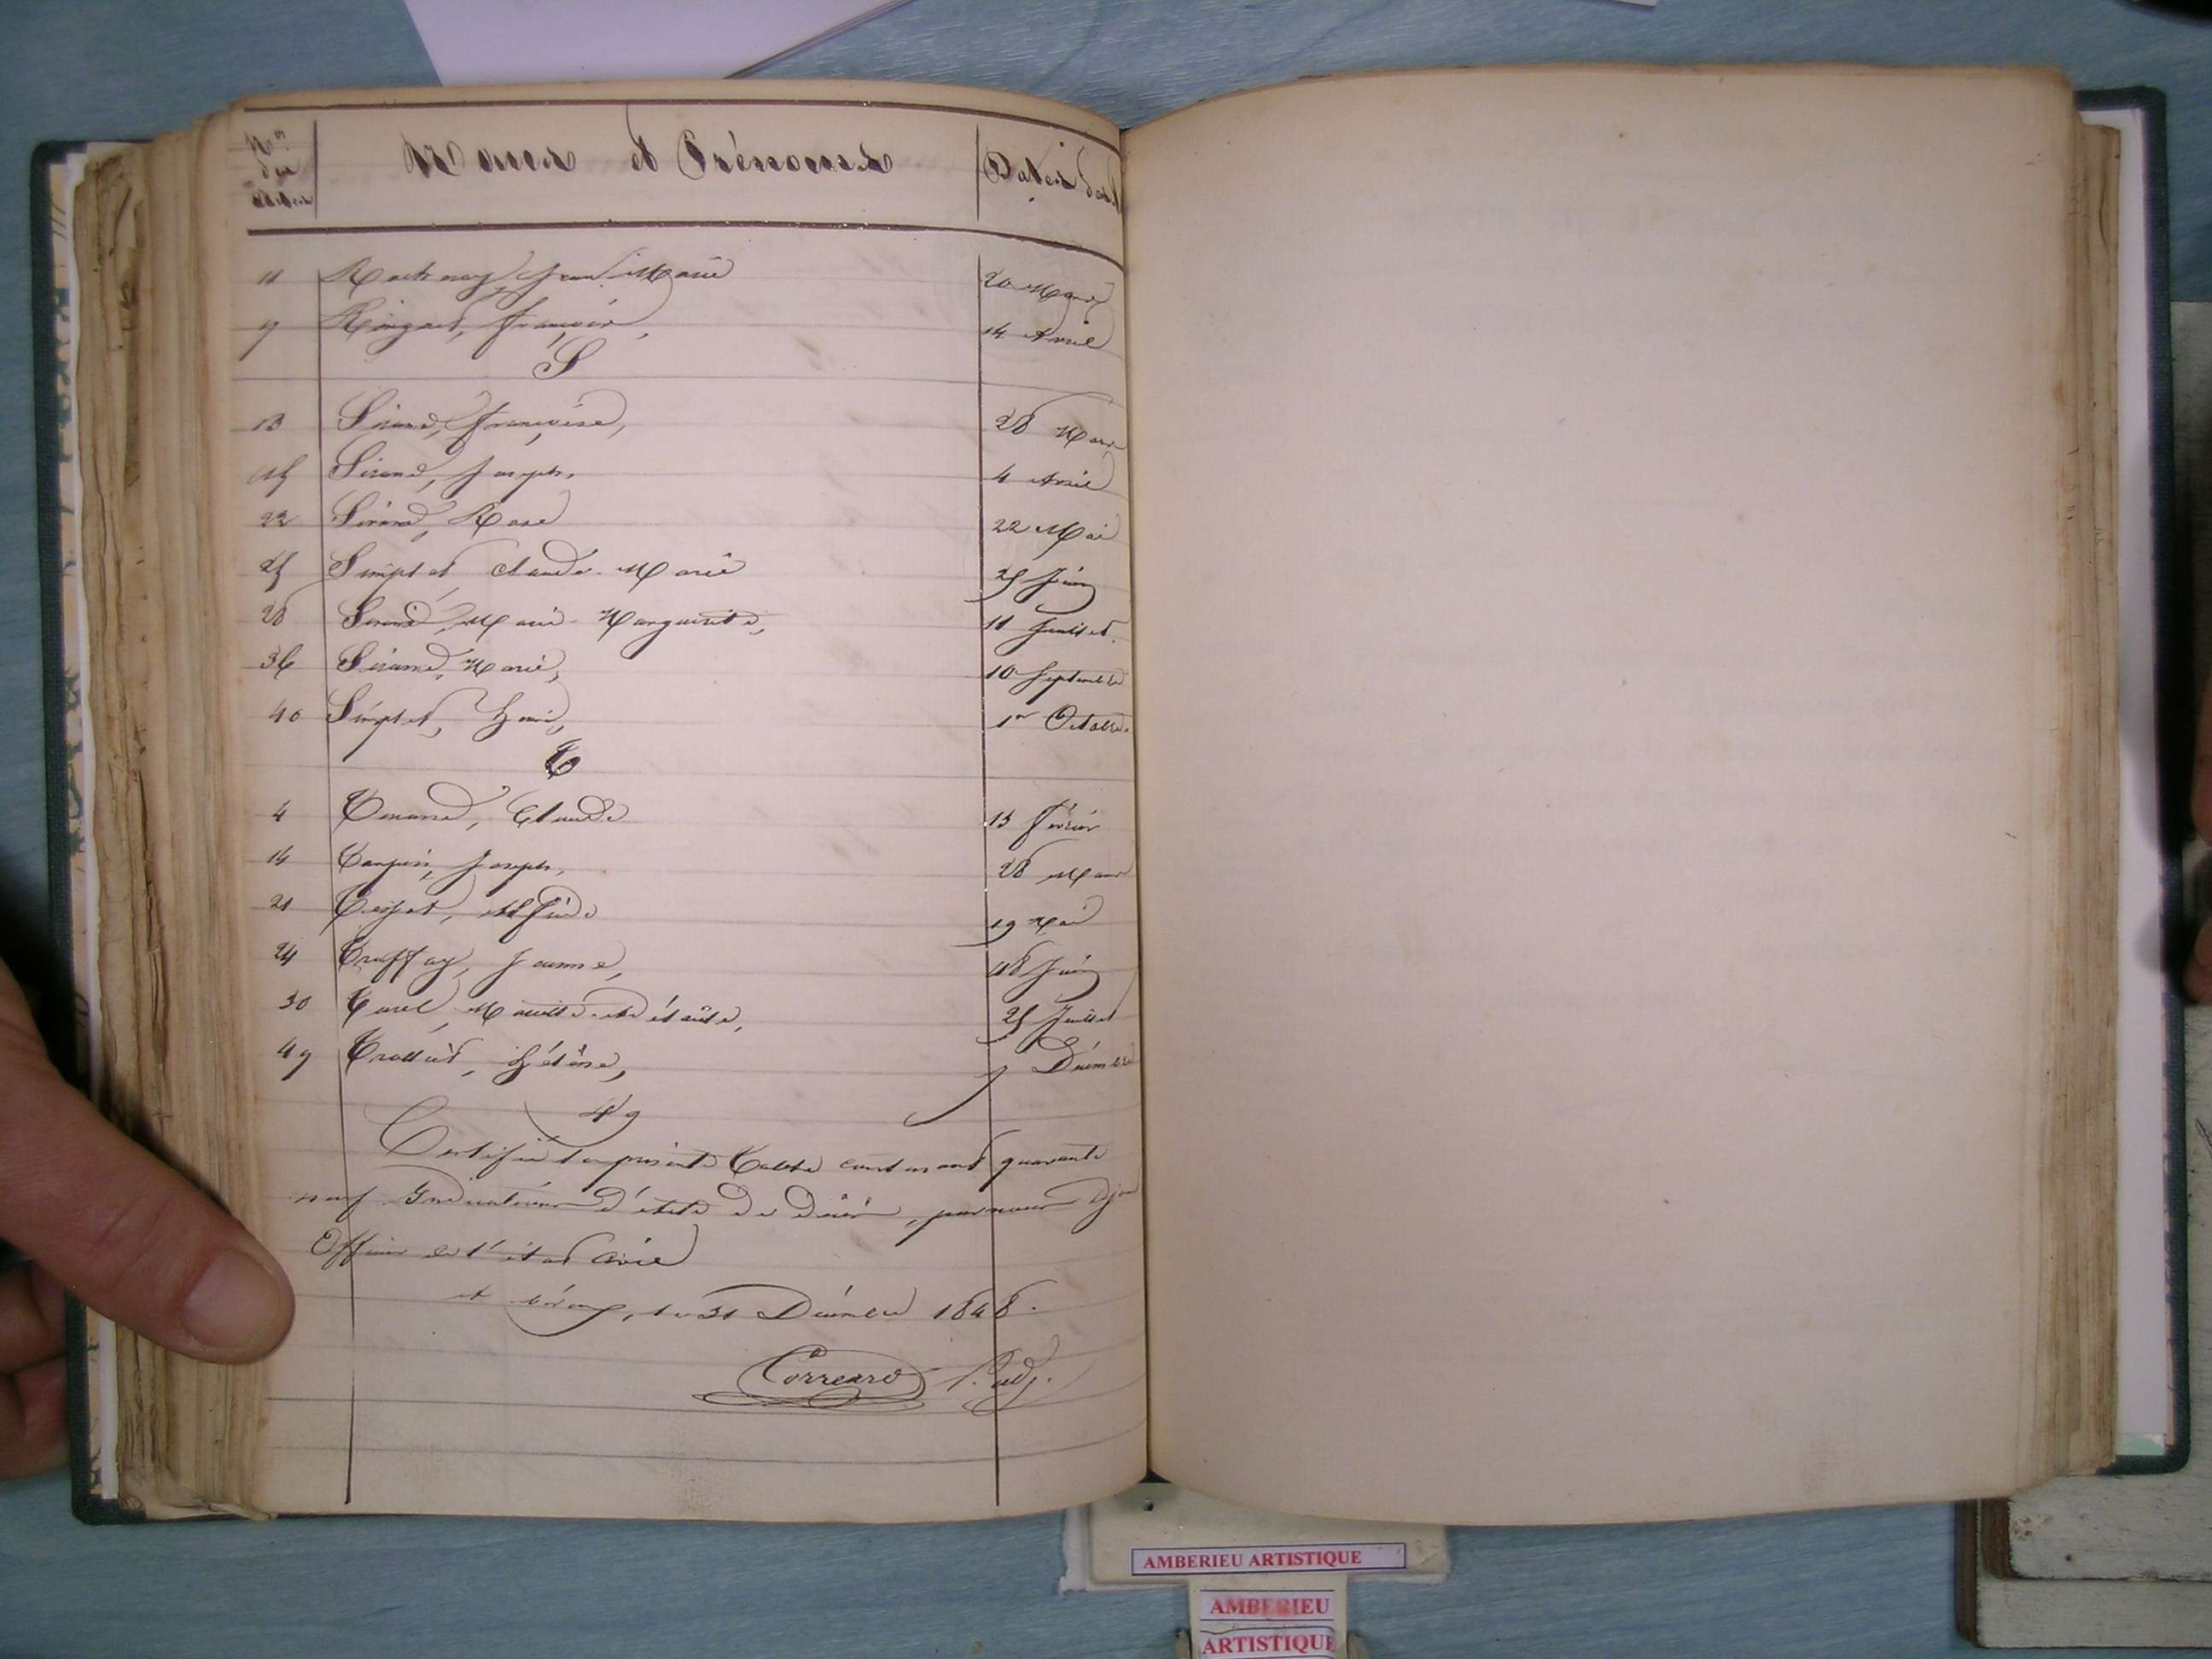 Nos des Actes Noms et Prénoms Dates des
11 Jean Marie 20 Mars
9 François, 14 Avril
S
13 Sirand, Françoise, 28 Mars
15 Sirand, Joseph, 4 Avril
22 Sirand, Rose 22 Mai
25 Simplet Claude Marie 25 Juin
28 Sirand, Marie Marguerite, 11 Juillet.
36 Sirand, Marie, 10 Septembre
40 Simplet, 1er Octobre.
T
4 Tenand, Claude 13 Février
14 Joseph, 28 Mars
21 19 Mai
24 Truffay, Jeanne, 18 Juin
30 25 Juillet
49 Hélène, 7 Décembre
49
Certifié la présente Table contenant quarante
neuf Indications d'actes de décès, par nous Adjoint
Officier de l'état Civil
le 31 Décembre 1848.
Correard l'adj.
AMBERIEU ARTISTIQUE
AMBERIEU
ARTISTIQUE